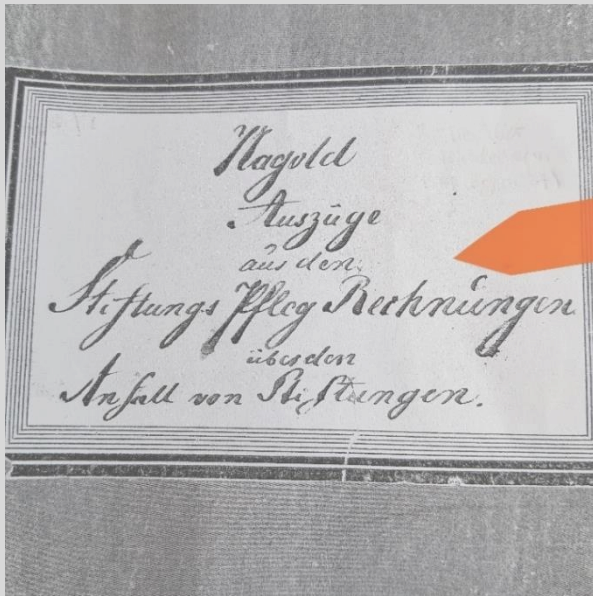 Nagold
Auszüge
aus den
Stiftungs Pfleg Rechnungen
über den
Anfall von Stiftungen.